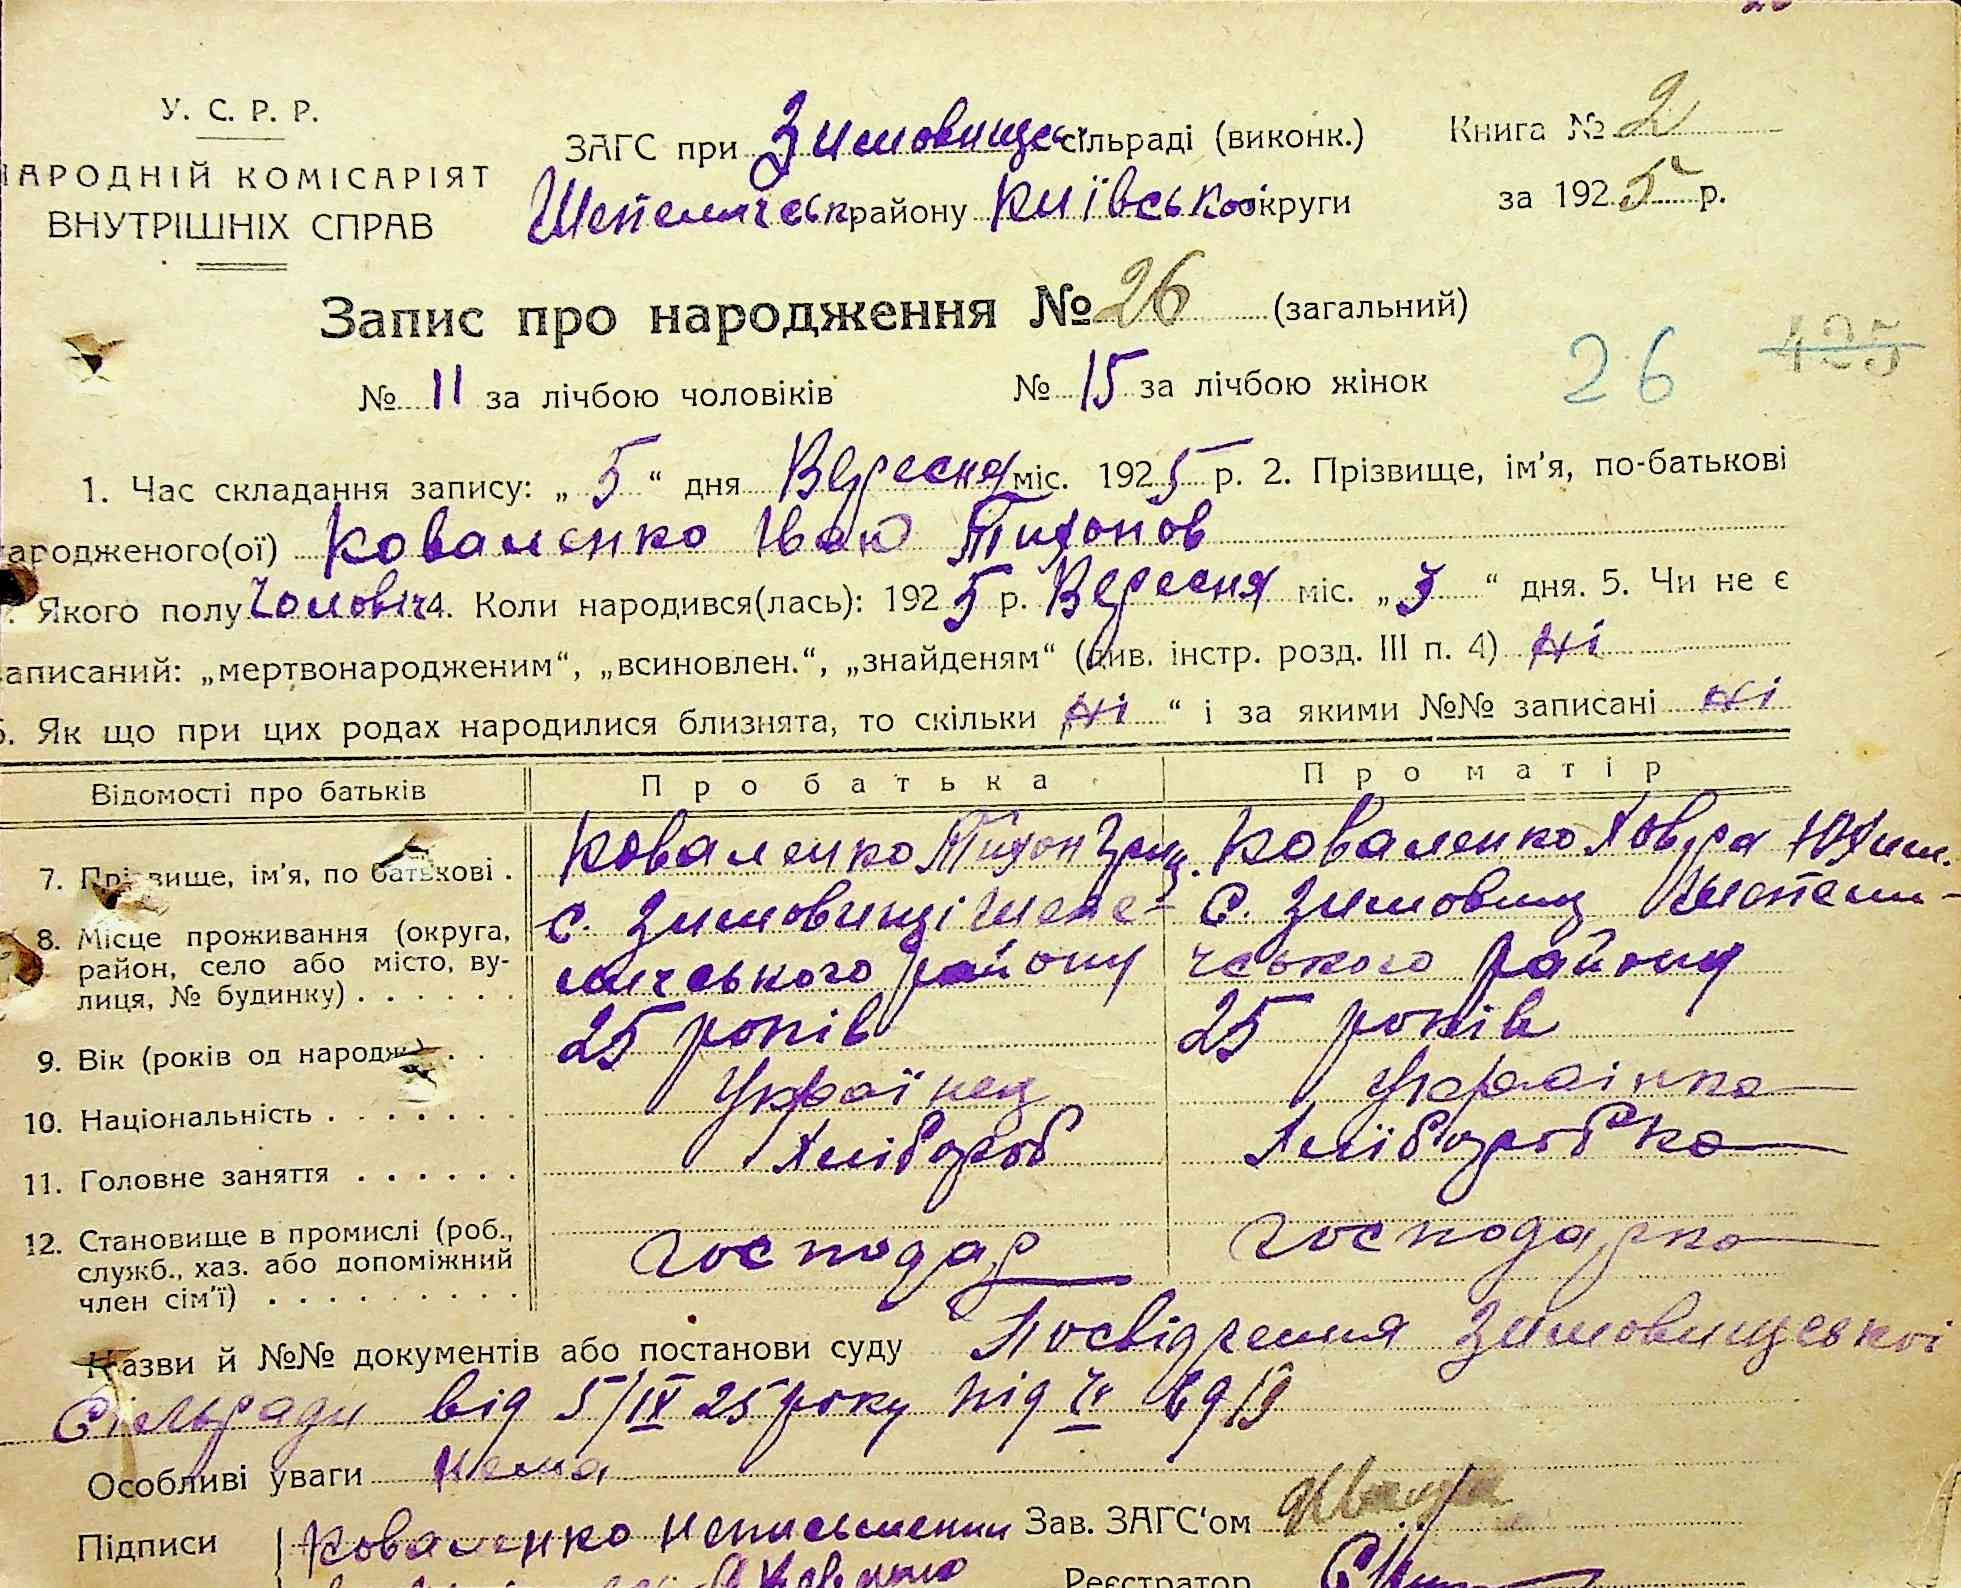 У. С. Р. Р.
НАРОДНІЙ КОМІСАРІЯТ
ВНУТРІШНІХ СПРАВ
ЗАГС при Зимовищен сільраді (виконк.)
Шепеличськ району Київсько округи
Книга № 2
за 1925 р.
Запис про народження № 26 (загальний)
№ 11 за лічбою чоловіків № 15 за лічбою жінок
26 425
1. Час складання запису: „ 5 “ дня Вересня міс. 1925 р. 2. Прізвище, ім’я, по-батькові
ародженого(ої) Коваленко Іван Тихонов
Якого полу Чоловіч 4. Коли народився(лась): 1925 р. Вересня міс. „ 3 “ дня. 5. Чи не є
аписаний: „мертвонародженим“, „всиновлен.“, „знайденям“ (див. інстр. розд. III п. 4) Ні
6. Як що при цих родах народилися близнята, то скільки Ні “ і за якими №№ записані Ні
Відомості про батьків Про батька Про матір
7. Прізвище, ім’я, по батькові . Коваленко Тихон Коваленко Ховра Юхим.
8. Місце проживання (округа, район, село або місто, вулиця, № будинку) . . . . . . с. Зимовищі Шепе-
личського району
с. Зимовищ Шепели-
чського району
9. Вік (років од народж.) . . 25 років 25 років
10. Національність . . . . . . . Українец Українка
11. Головне заняття . . . . . . Хлібороб Хліборобка
12. Становище в промислі (роб., служб., хаз. або допоміжний член сім’ї) . . . . . . . . . Господар Господарка
Назви й №№ документів або постанови суду Посвідчення Зимовищської
Сільради від 5/IX 25 року під №
Особливі уваги Нема
Підписи Коваленко неписьменни Зав. ЗАГС‘ом
Реєстратор